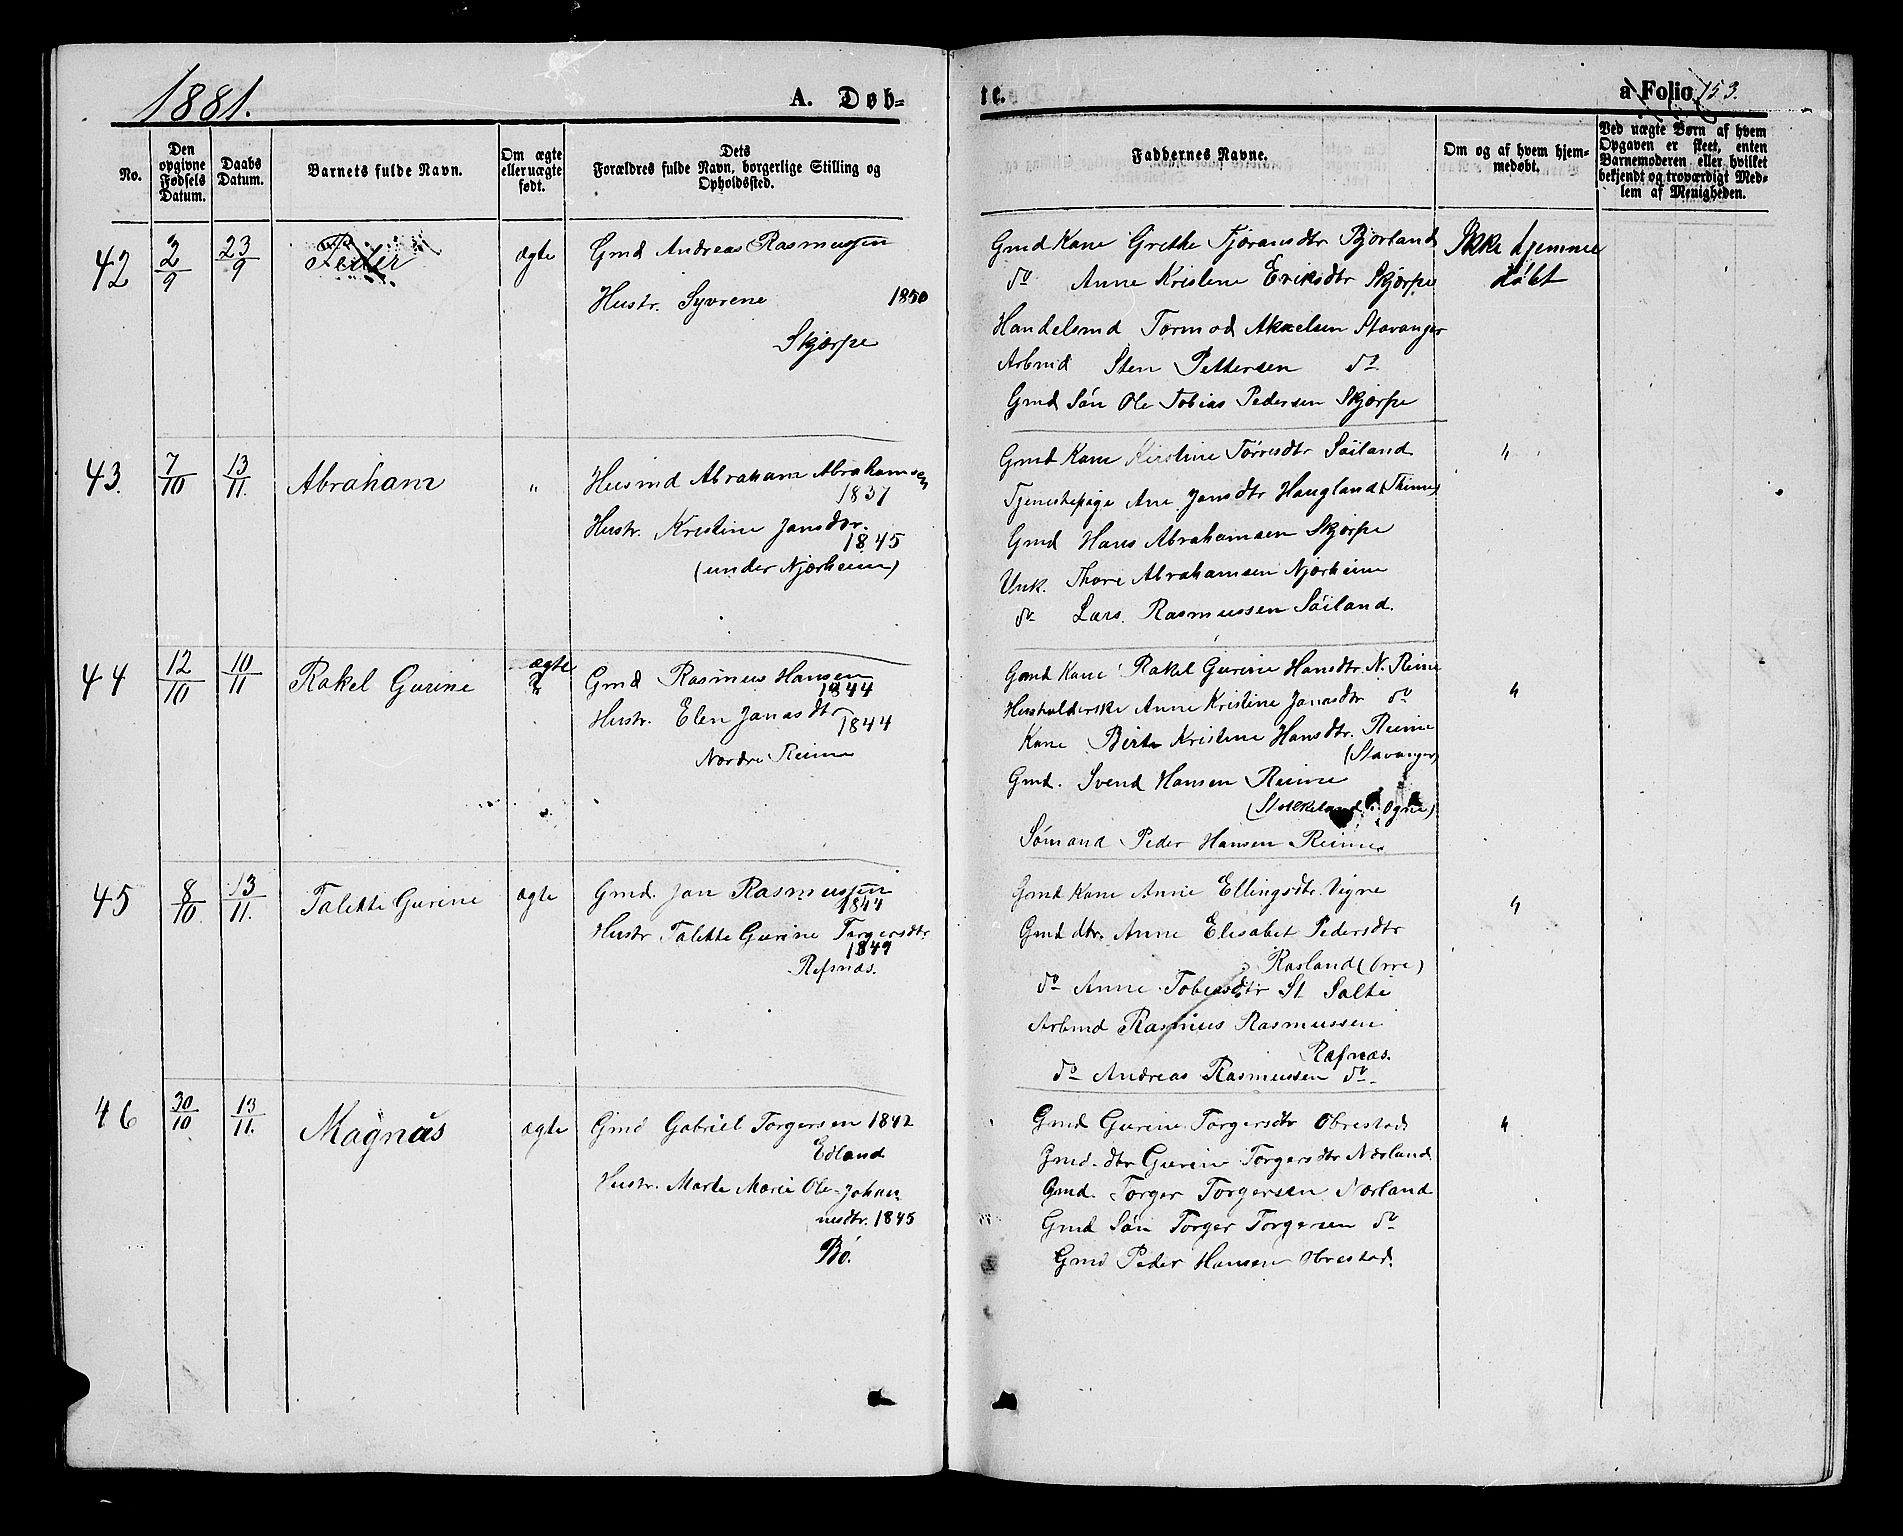 1881.
A. Døb-
te.
a Folio 153.
No.
Den opgivne Fødsels Datum.
Daabs Datum.
Barnets fulde Navn.
Om ægte eller uægte født.
Dets Forældres fulde Navn, borgerlige Stilling og Opholdssted.
Faddernes Navne.
Om og af hvem hjemmedøbt.
Ved uægte Børn af hvem Opgaven er skeet, enten Barnemoderen eller hvilket bekjendt og troværdigt Medlem af Menigheden.
42 2/9 23/9 Peder ægte
Gmd Andreas Rasmussen
Hustr. Syvrene 1850
Skjærpe
Gmd Kone Grethe Tjøransdtr Bjorland
do Anne Kristine Eriksdtr Skjærpe
Handelsmd Tormod Akselsen Stavanger
Arbmd Sten Pettersen do
Gmd Søn Ole Tobias Pedersen Skjærpe
Ikke hjemme
døbt
43. 7/10 13/11. Abraham "
Husmd Abraham Abrahamsen
1837
Hustr. Kristine Jansdtr.
1845
(under Njærheim)
Gmd Kone Kirstine Torresdtr Søiland
Tjenestepige Ane Jansdtr Haugland (Thime)
Gmd Hans Abrahamsen Skjærpe
Unk. Thore Abrahamsen Njærheim
do Lars Rasmussen Søiland.
"
44 12/10 10/11 Rakel Gurine ægte
Gmd Rasmus Hansen
1844
Hustr. Elen Janasdtr
1844
Nordre Reime
Gmd Kone Rakel Gurine Hansdtr. N. Reime
Husholderske Anne Kristine Janasdtr do
Kone Birte Kristine Hansdtr. Reime
(Stavanger)
Gmd. Svend Hansen Reime
(Stokkeland i Ogne)
Sømand Peder Hansen Reime
"
45 8/10. 13/11. Talette Gurine ægte
Gmd. Jan Rasmussen
1844
Hustr Talette Gurine Torgersdtr
1849
Refsnæs.
Gmd Kone Anne Ellingsdtr. Vigre
Gmd dtr. Anne Elisabet Pedersdtr
Rosland (Orre)
do Anne Tobiasdtr St Salte
Arbmd Rasmus Rasmussen
Ræfnæs.
do Andreas Rasmussen do
"
46 30/10 13/11. Magnus ægte
Gmd Gabriel Torgersen 1842
Edland
Hustr. Marte Marie Ole-Johan-
nesdtr. 1845
Bø.
Gmd Gurine Torgersdtr Obrestad
Gmd. dtr Gurine Torgersdtr Nærland
Gmd. Torger Torgersen Nærland
Gmd Søn Torger Torgersen do
Gmd Peder Hansen Obrestad.
"